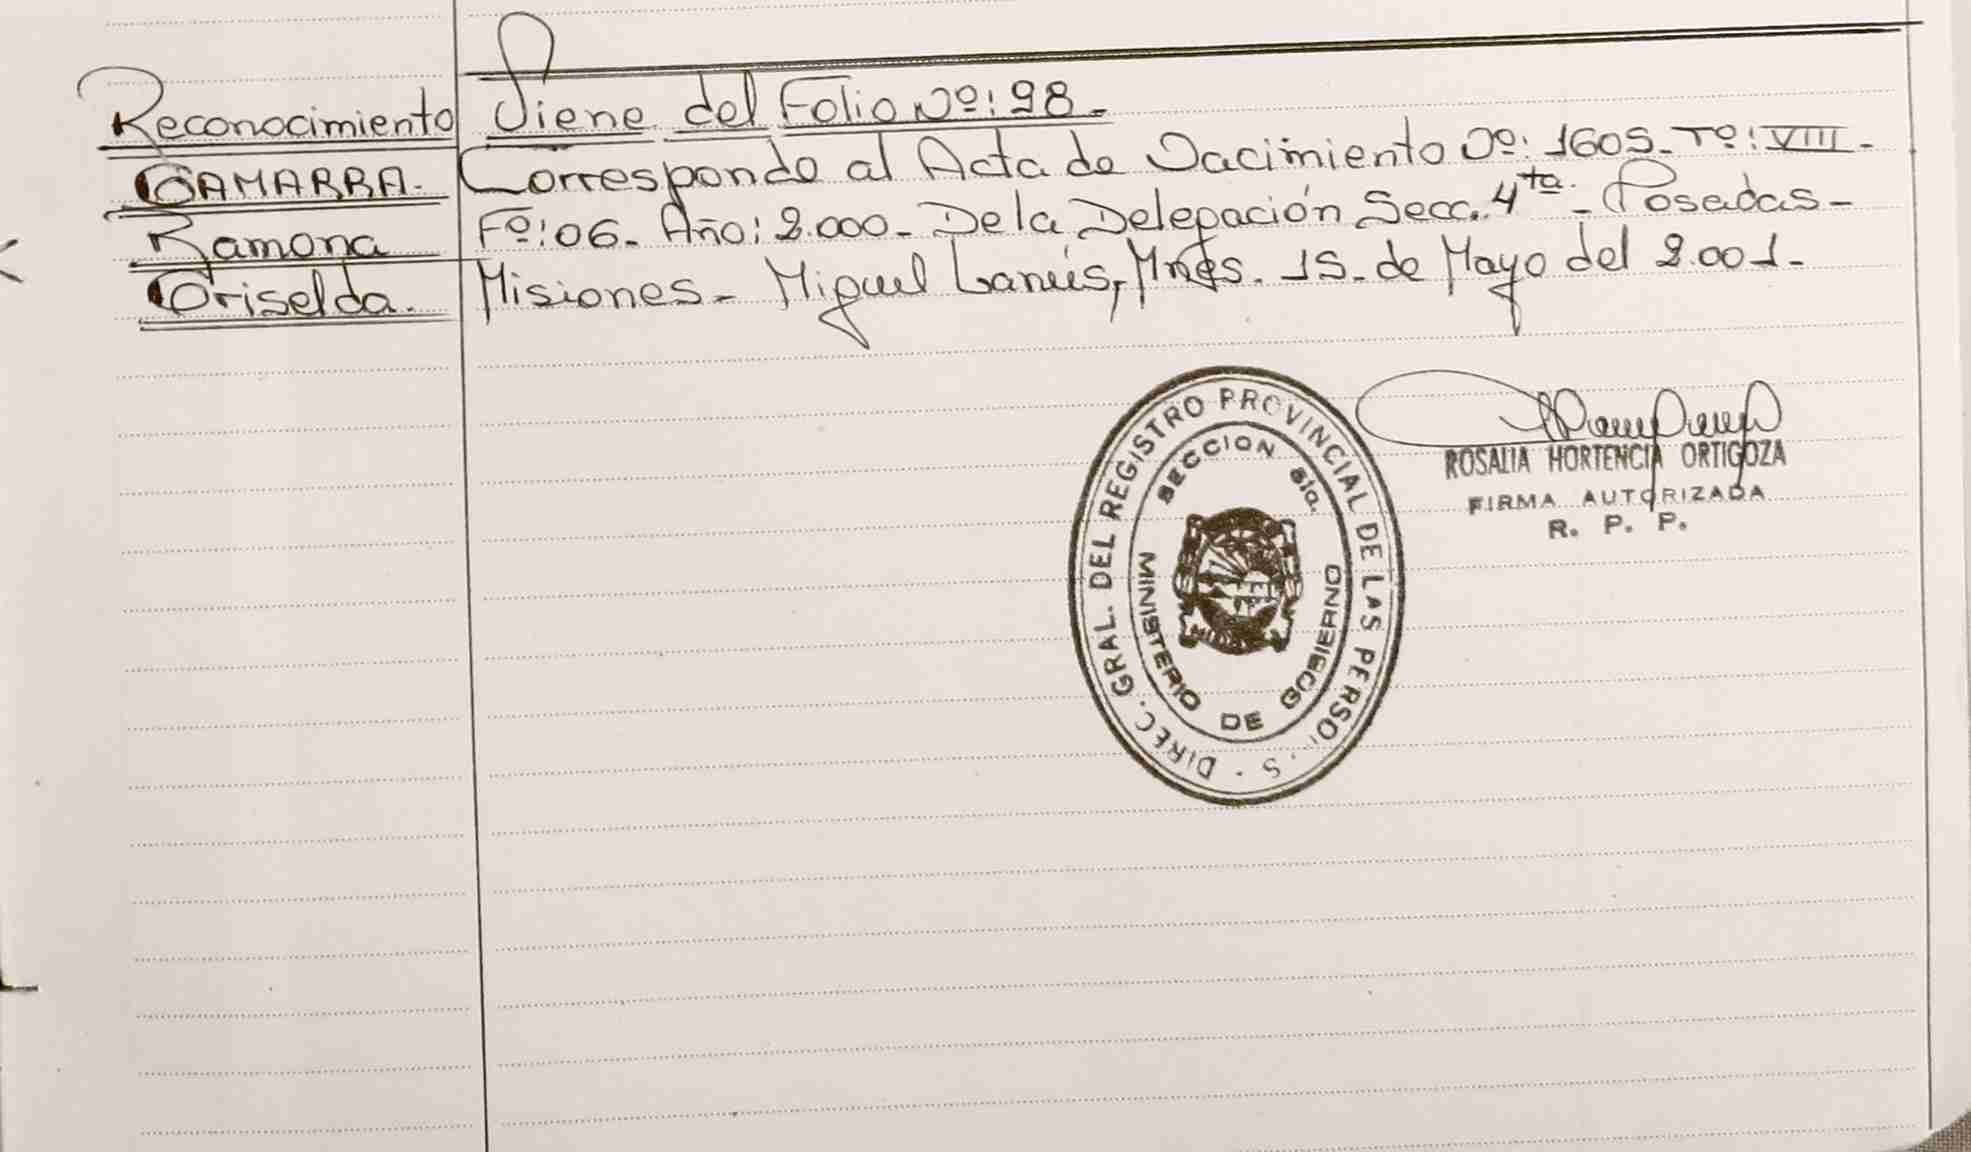 Reconocimiento
GAMARRA.
Ramona
Griselda.
Viene del Folio Nº: 98.-
Corresponde al Acta de Nacimiento Nº: 1605.- Tº: VIII.-
Fº: 06.- Año: 2.000.- De la Delegación Secc. 4ta.- Posadas-
Misiones.- Miguel Lanús, Mnes. 15.- de Mayo del 2.001.-
DIREC. GRAL. DEL REGISTRO PROVINCIAL DE LAS PERSO . S
SECCION 8ta.
MINISTERIO DE GOBIERNO
ROSALIA HORTENCIA ORTIGOZA
FIRMA AUTORIZADA
R. P. P.